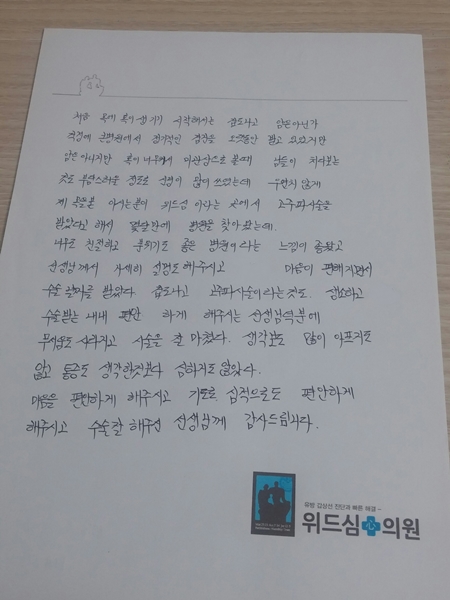 처음 목에 혹이 생기기 시작해서는 겁도나고 암은아닌가
걱정에 큰병원에서 정기적인 검진을 오랫동안 받고 있었지만
암은 아니지만 혹이 너무커서 미관상으로 볼때 남들이 쳐다보는
것도 부담스러울 정도로 신경이 많이 쓰였는데 우연치 않게
제 목을본 아시는분이 위드심 이라는 곳에서 고주파시술을
받았다고 해서 몇달만에 병원을 찾아왔는데.
너무도 친절하고 분위기도 좋은 병원이라는 느낌이 좋았고
선생님께서 자세히 설명도 해주시고 마음이 편해지면서
수술 날짜를 받았다. 겁도나고 고주파시술이라는것도 생소하고
수술받는 내내 편안 하게 해주시는 선생님덕분에
무서움도 사라지고 시술을 잘 마쳤다. 생각보다 많이 아프지도
않고 통증도 생각한것보다 심하지도 않았다.
마음을 편안하게 해주시고 기도로 심적으로도 편안하게
해주시고 수술잘 해주신 선생님께 감사드립니다.
유방 갑상선 진단과 빠른 해결
위드심 의원